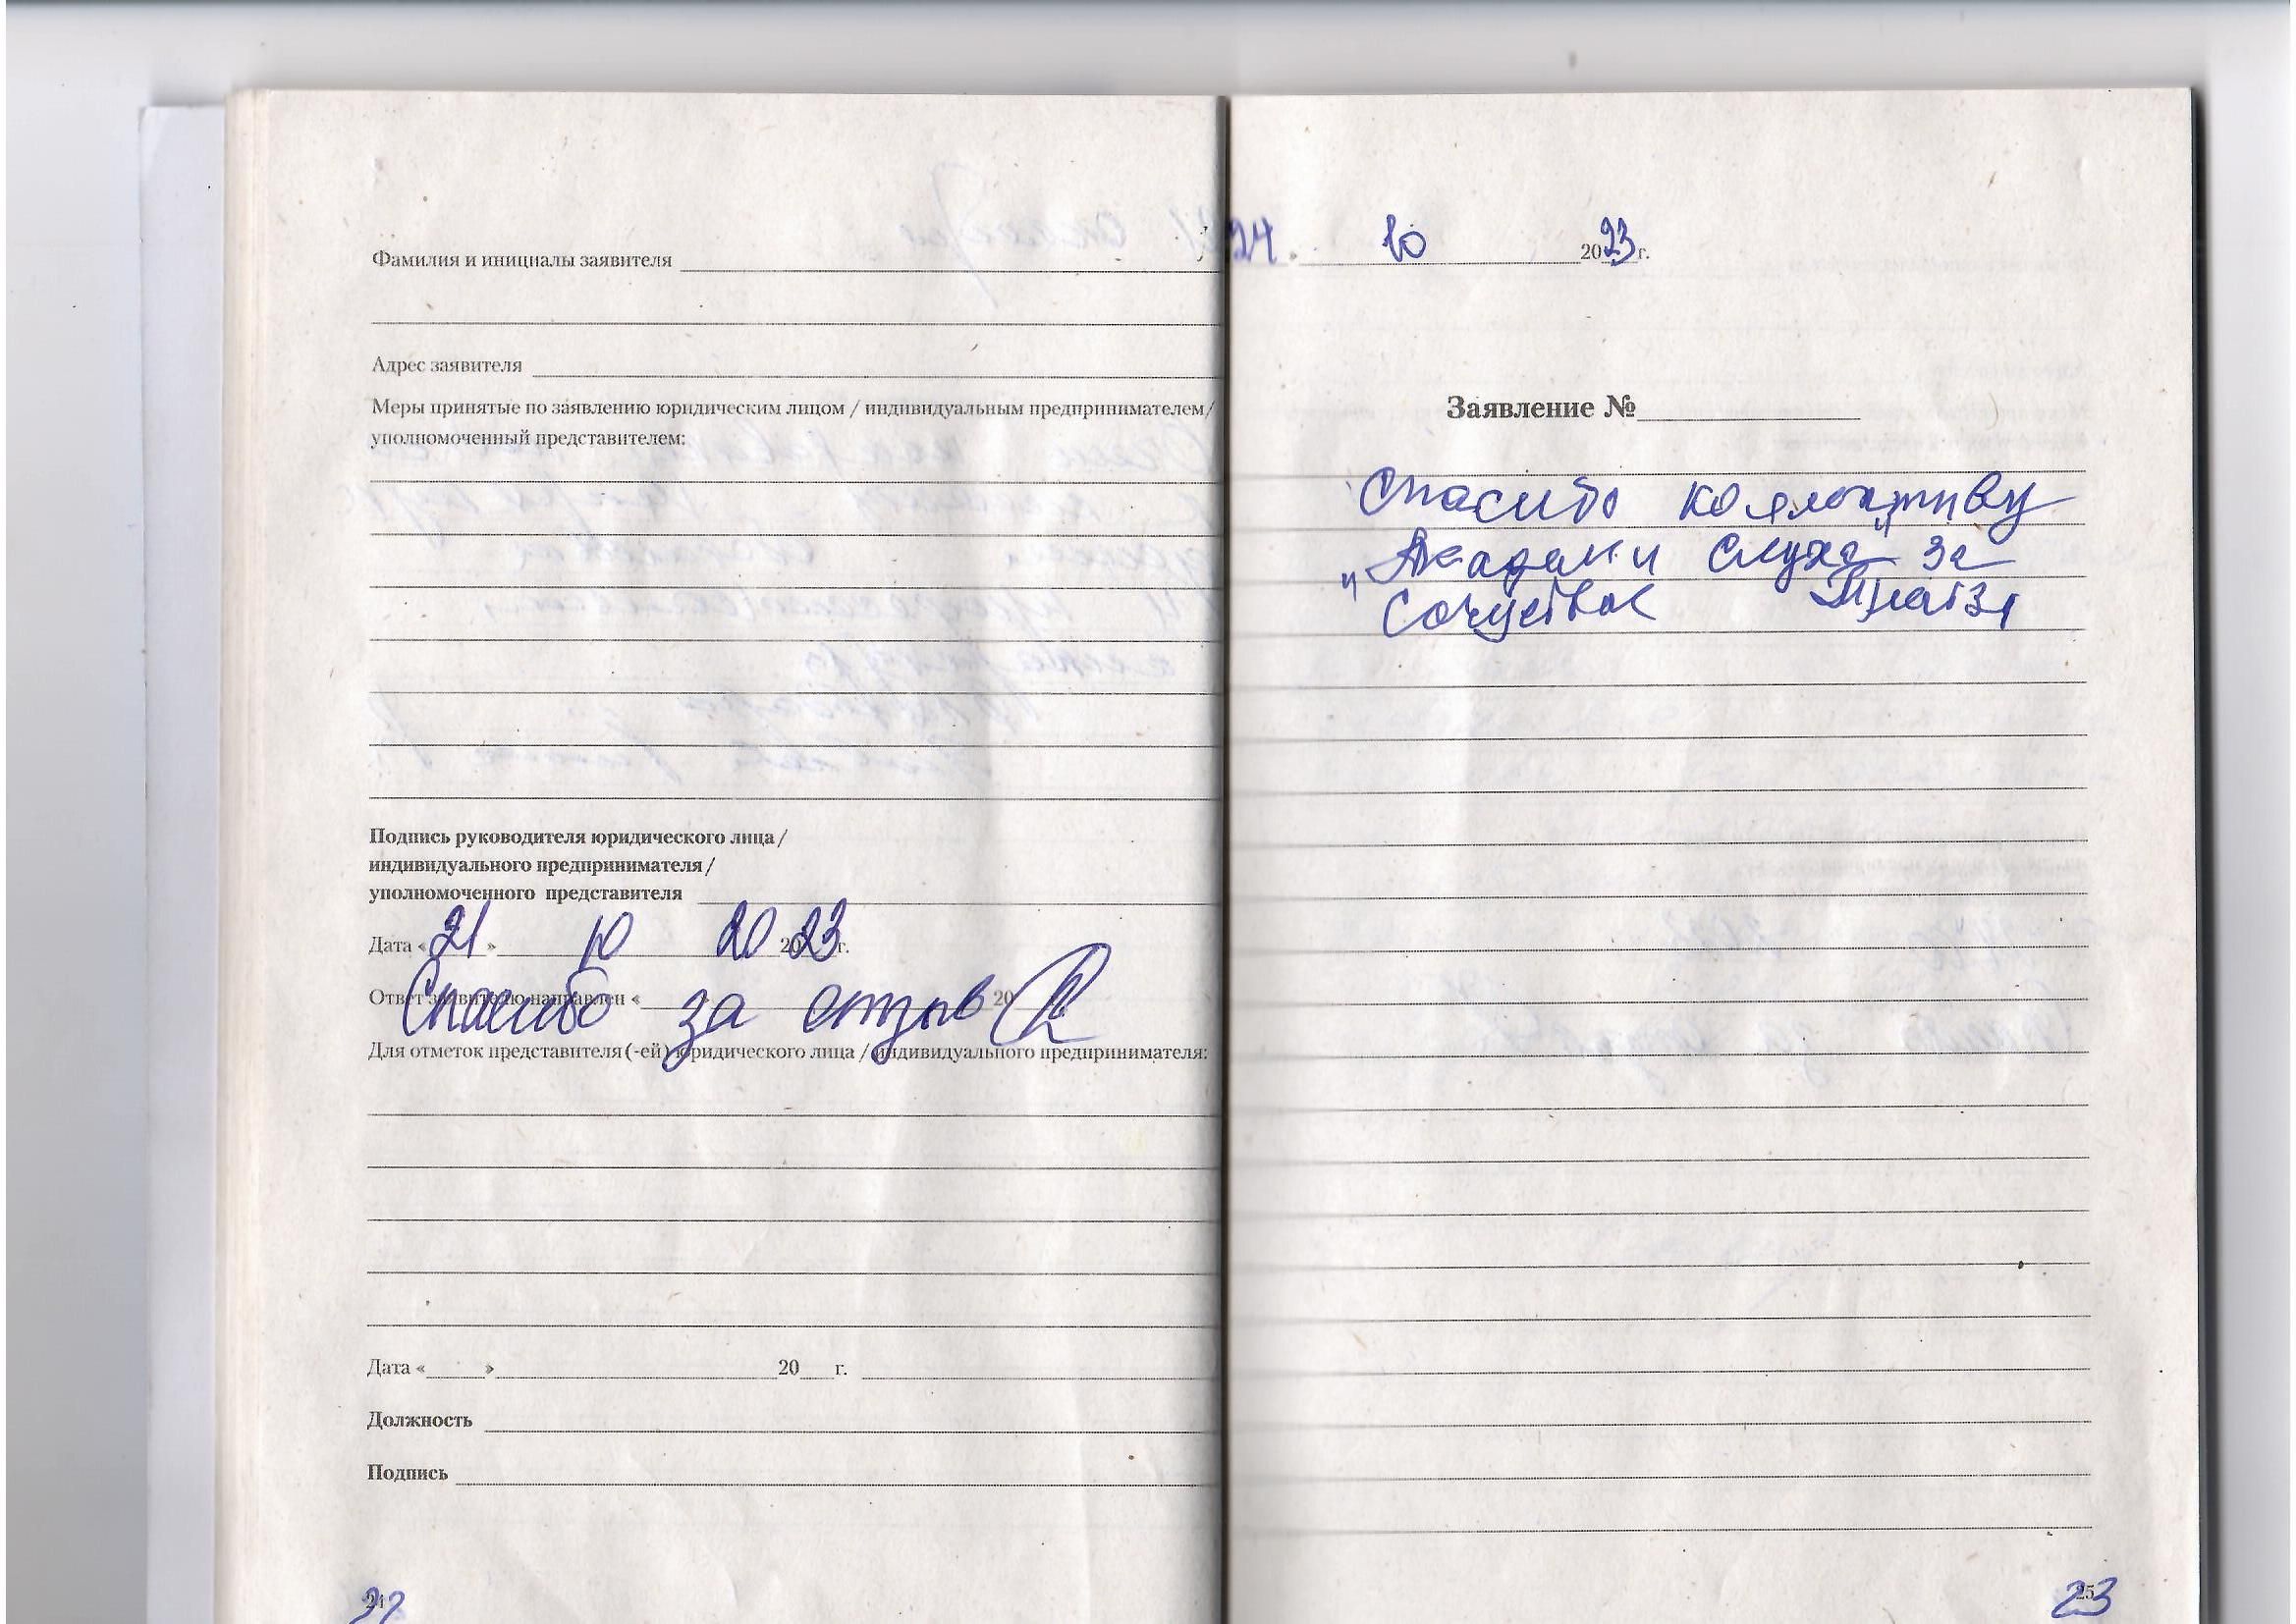 Фамилия и инициалы заявителя
Адрес заявителя
Меры принятые по заявлению юридическим лицом / индивидуальным предпринимателем/
уполномоченный представителем:
Подпись руководителя юридического лица /
индивидуального предпринимателя /
уполномоченного представителя
Дата « 21 » 10 20 2023г.
Ответ заявителю направлен « 20
Спасибо за отзыв
Для отметок представителя(-ей) юридического лица / индивидуального предпринимателя:
Дата « » 20 г.
Должность
Подпись
22
24. 10 2023г.
Заявление №
Спасибо коллективу
„Академи Слуха" за
23